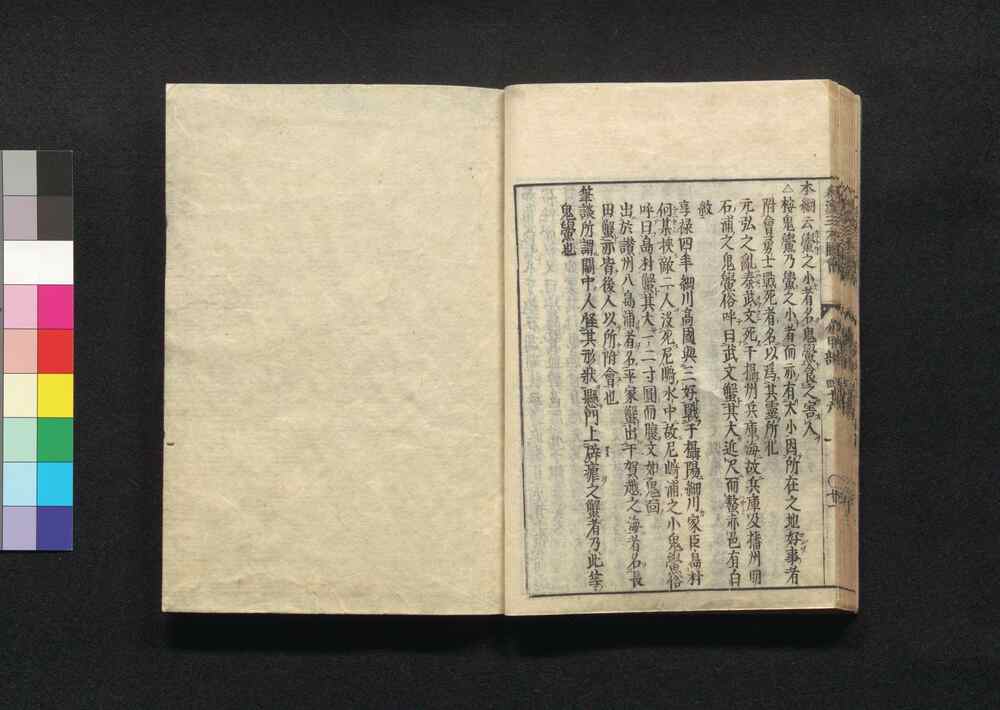 本綱云蟹之小者名鬼蟹食之害人
△桉鬼蟹乃蟹之小者而亦有大小因所在之地好事者
附會勇士戰死者名以爲其靈所化
元弘之亂秦武文死于攝州兵庫海故兵庫及播州明
石浦之鬼蟹俗呼曰武文蟹其大近尺而螯赤色有白
紋
享禄四年細川髙國與三好戰于攝陽細川家臣島村
何某挾敵二人沒死尼﨑水中故尼﨑浦之小鬼蟹俗
呼曰島村蟹其大一二寸圓而腹文如鬼面
出於讃州八島浦者名平家蟹出于賀越之海者名長
田蟹亦皆後人以所附會也
筆談所謂關中人怪其形狀懸門上辟瘧之蟹者乃此等
鬼蟹也